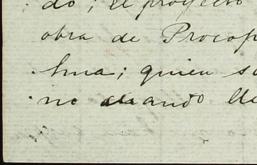 do; el proyecto
obra de Procop
hma; quien s
no cuando lle